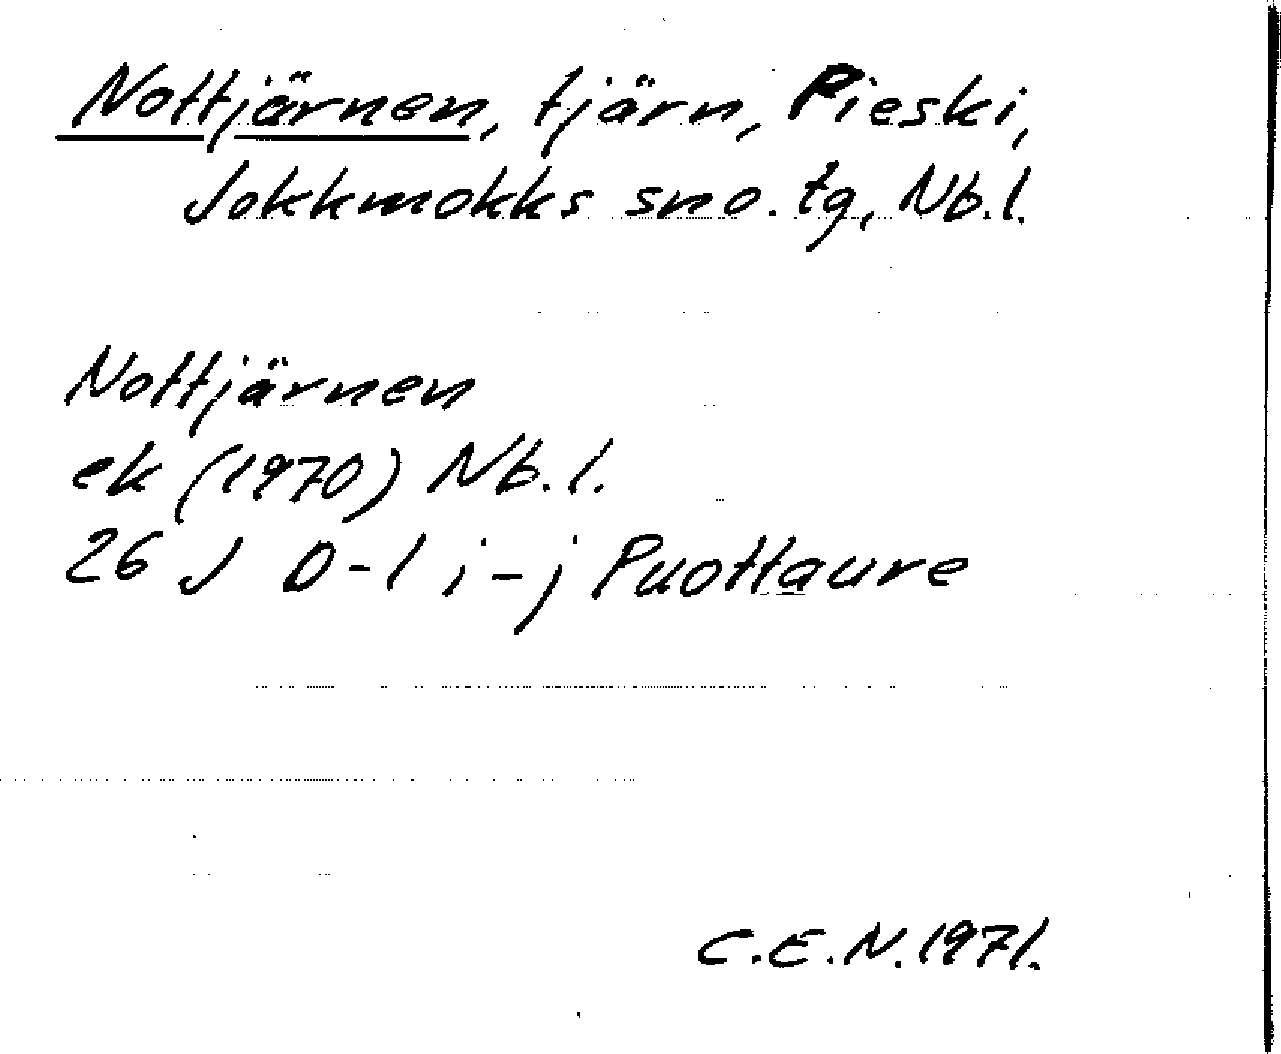 Nottjärnen, tjärn, Pieski,
Jokkmokks sno. tg, Nb.l.
Nottjärnen
ek (1970) Nb.l.
26 J 0-1 i-j Puottaure
C.E.N. 1971.